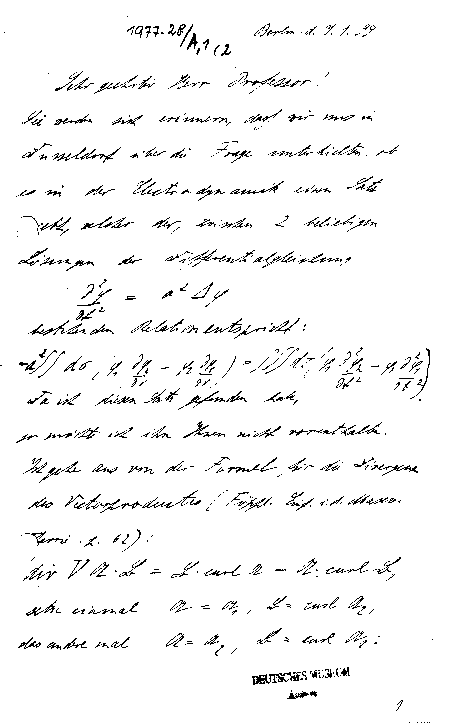 1977-28/A,1 (2
Berlin d. 7.1.99
Sehr geehrter Herr Professor!
Sie werden sich erinnern, dass wir uns in
Düsseldorf über die Frage unterhielten, ob
es in der Electrodynamik einen Satz
giebt, welcher der, zwischen 2 beliebigen
Lösungen der Differentialgleichung
∂²φ/∂t² = a² Δφ
bestehenden Relation entspricht:
-a²∫∫ dσ (φ₁ ∂φ₂/∂ν - φ₂ ∂φ₁/∂ν) = ∫∫∫ dτ (φ₁ ∂²φ₂/∂t² - φ₂ ∂²φ₁/∂t²).
Da ich diesen Satz gefunden habe,
so möchte ich ihn Ihnen nicht vorenthalten.
Ich gehe aus von der Formel für die Divergenz
des Vectorproductes (Föppl. Einf. i. d. Maxw.
Theorie p. 62):
div V 𝔄 𝔏 = 𝔏 curl 𝔄 - 𝔄 curl 𝔏,
setze einmal 𝔄 = 𝔄₁, 𝔏 = curl 𝔄₂,
das andre mal 𝔄 = 𝔄₂, 𝔏 = curl 𝔄₁:
DEUTSCHES MUSEUM
1